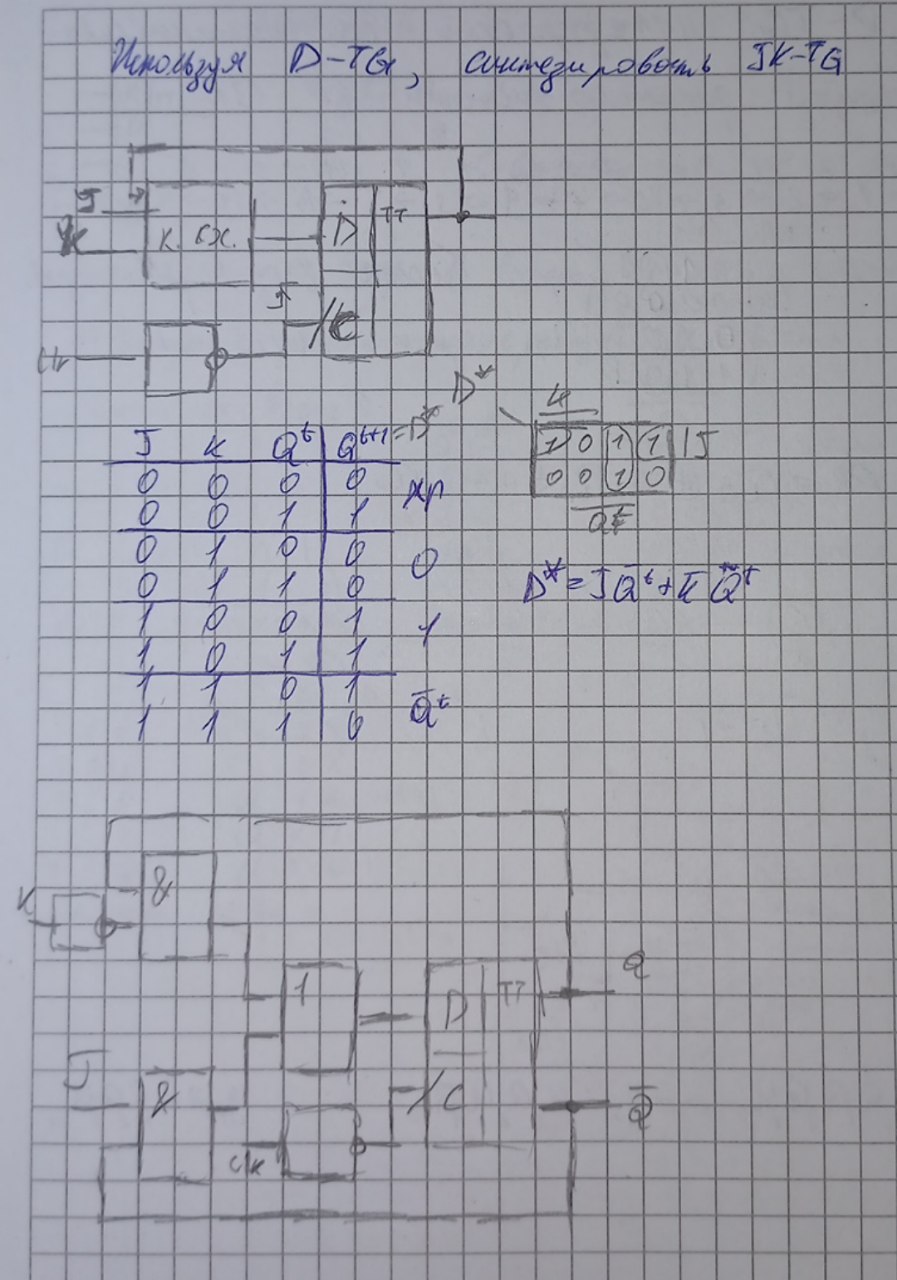 Используя D-TG, синтезировать JK-TG
J
K
К. СХ.
D
TT
C
D*
J K Qᵗ Qᵗ⁺¹=D*
0 0 0 0
хр
0 0 1 1
0 1 0 0
0
0 1 1 0
1 0 0 1
1
1 0 1 1
1 1 0 1
Q̅ᵗ
1 1 1 0
K
1 0 1 1 J
0 0 1 0
Qᵗ
D*=JQ̅ᵗ+K̅Qᵗ
K
&
1
D
TT
Q
J
&
C
Q̅